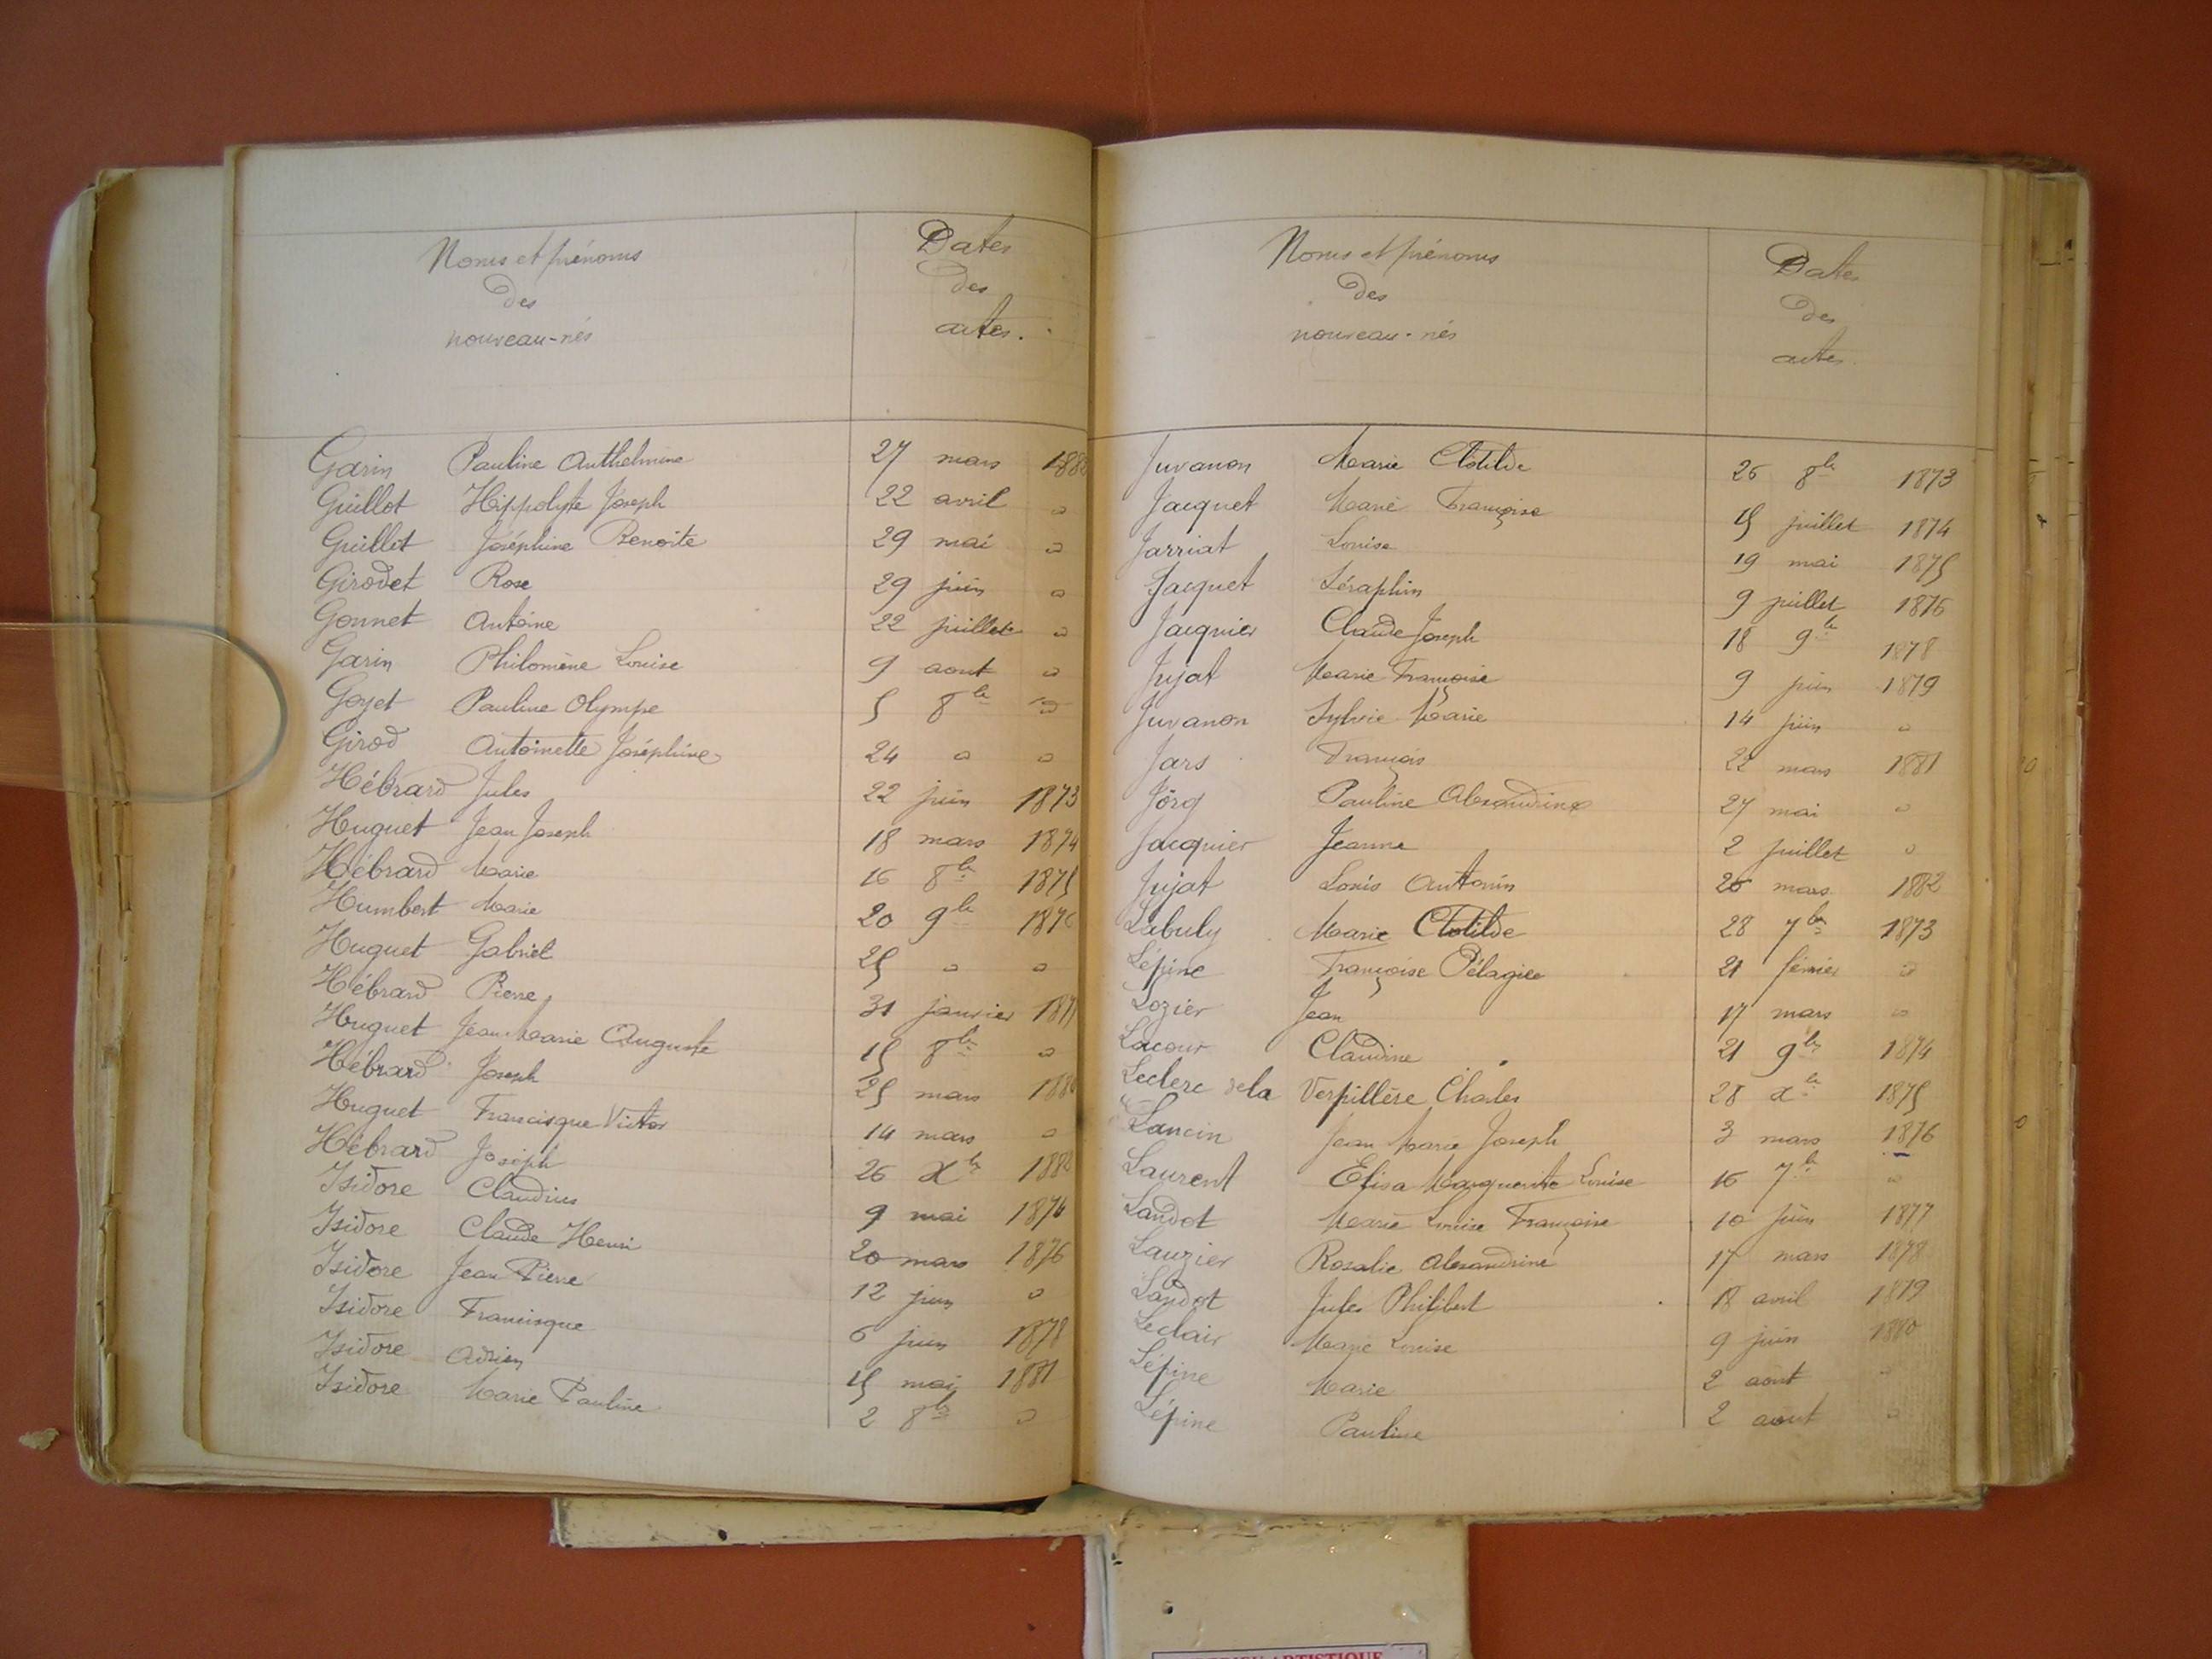 Noms et prénoms
des
nouveau-nés
Dates
des
actes.
Garin Pauline Anthelmine 27 mars 188
Guillot Hippolyte Joseph 22 avril "
Guillet Joséphine Benoite 29 mai "
Girodet Rose 29 juin "
Gonnet Antoine 22 juillet "
Garin Philomène Louise 9 aout "
Goyet Pauline Olympe 5 8bre "
Girod Antoinette Joséphine 24 " "
Hébrard Jules 22 juin 1873
Huguet Jean Joseph 18 mars 1874
Hébrard Marie 16 8bre 1875
Humbert Marie 20 9bre 1876
Huguet Gabriel 25 " "
Hébrard Pierre 31 janvier 187
Huguet Jean Marie Auguste 15 8bre "
Hébrard Joseph 25 mars 188
Huguet Francisque Victor 14 mars "
Hébrard Joseph 26 Xbre 188
Isidore Claudius 9 mai 1874
Isidore Claude Henri 20 mars 1876
Isidore Jean Pierre 12 juin "
Isidore Francisque 6 juin 1878
Isidore Adrien 15 mai 1881
Isidore Marie Pauline 2 8bre "
Noms et prénoms
des
nouveau-nés
Dates
des
actes.
Juvanon Marie Clotilde 26 8bre 1873
Jacquet Marie Françoise 15 juillet 1874
Jarriat Louise 19 mai 1875
Jacquet Séraphin 9 juillet 1876
Jacquier Claude Joseph 18 9bre 1878
Jujat Marie Françoise 9 juin 1879
Juvanon Sylvie Marie 14 juin "
Jars François 22 mars 1881
Jörg Pauline Alexandrine 27 mai "
Jacquier Jeanne 2 juillet "
Jujat Louis Antonin 26 mars 1882
Labuly Marie Clotilde 28 7bre 1873
Lépine Françoise Pélagie 21 février "
Lozier Jean 17 mars "
Lacour Claudine 21 9bre 1874
Leclerc de la Verpillère Charles 28 Xbre 1875
Lancin Jean Marie Joseph 3 mars 1876
Laurent Elisa Marguerite Louise 16 7bre "
Landot Marie Louise Françoise 10 juin 1877
Lauzier Rosalie Alexandrine 17 mars 1878
Landot Jules Philibert 18 avril 1879
Leclair Marie Louise 9 juin 1880
Lépine Marie 2 aout "
Lépine Pauline 2 aout "